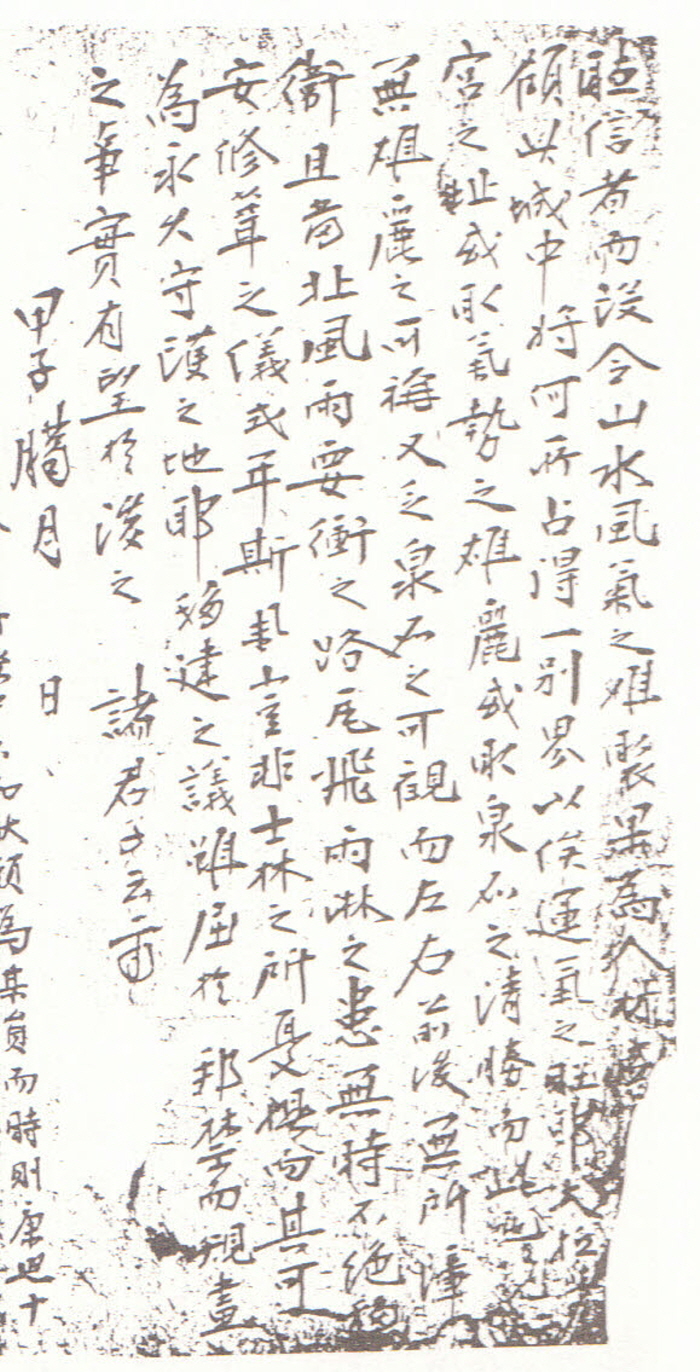 信者而設令山水風氣之難聚果爲人材
顧此城中將何所占得一別界以俟運氣之旺耶大抵
宮之址或取氣勢之雄麗或取泉石之清勝而此
無雄麗之可稱又乏泉石之可觀而左右前後無所障
衛且當北風雨要衝之路瓦飛雨淋之患無時不絶
安修葺之儀或年斯豈非士林之所憂懼而其可
爲永久守護之地耶 移建之議雖屈於 邦禁而規畫
之實有望於後之 諸君子云爾
甲子臘月 日
爲某員而時則康熙十